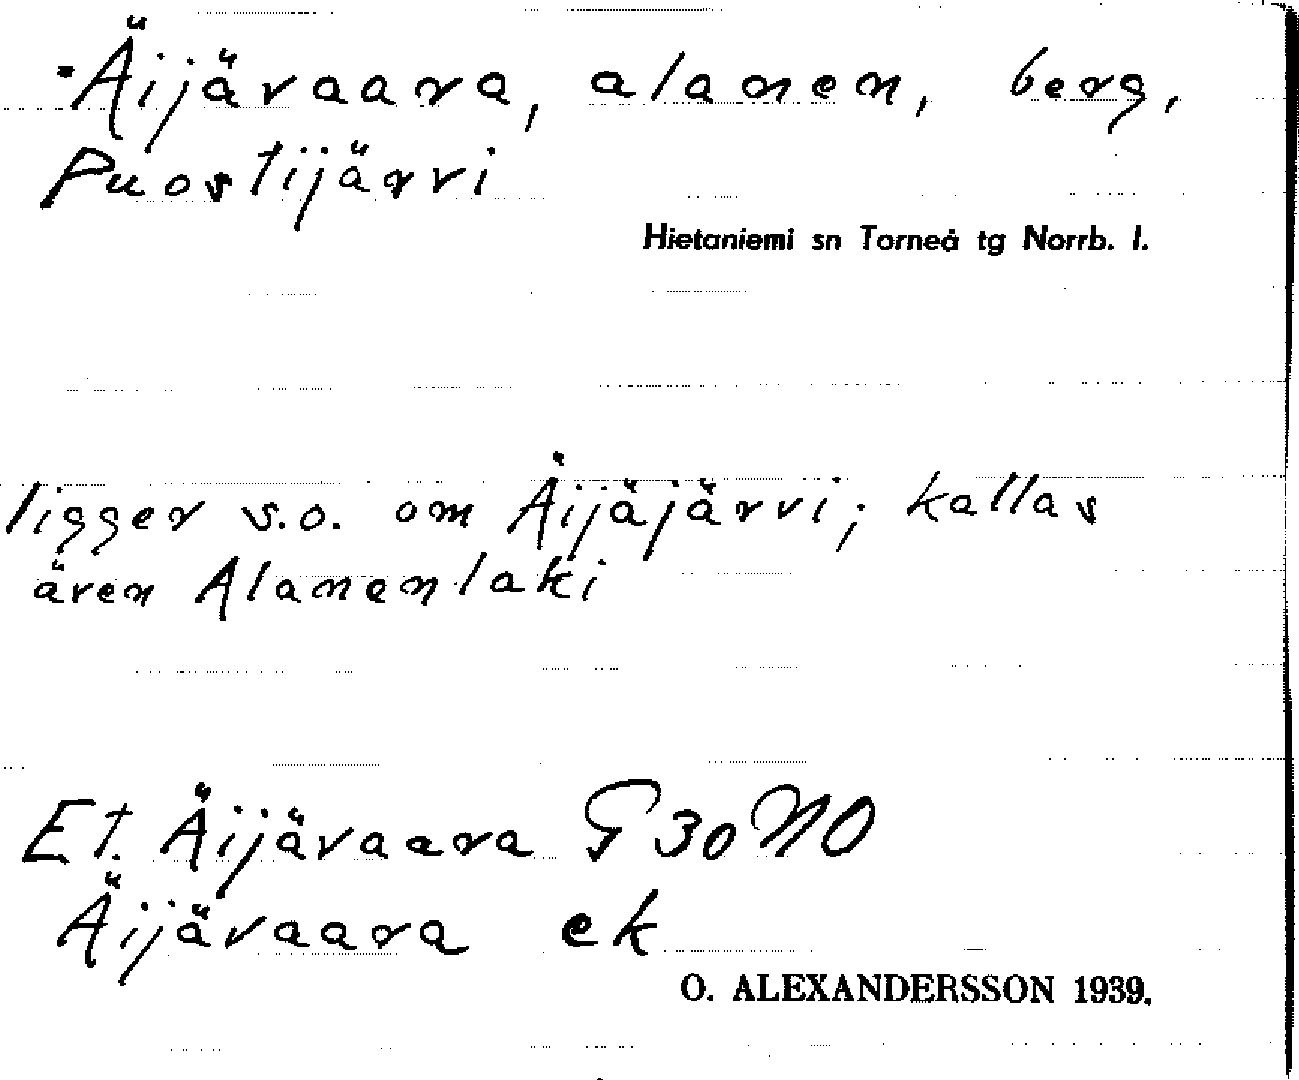 -Äijävaara, alanen, berg,
Puostijärvi
Hietaniemi sn Torneå tg Norrb. l.
ligger s.o. om Äijäjärvi; kallas
även Alanenlaki
Et. Äijävaara G 30 NO
Äijävaara ek
O. ALEXANDERSSON 1939.